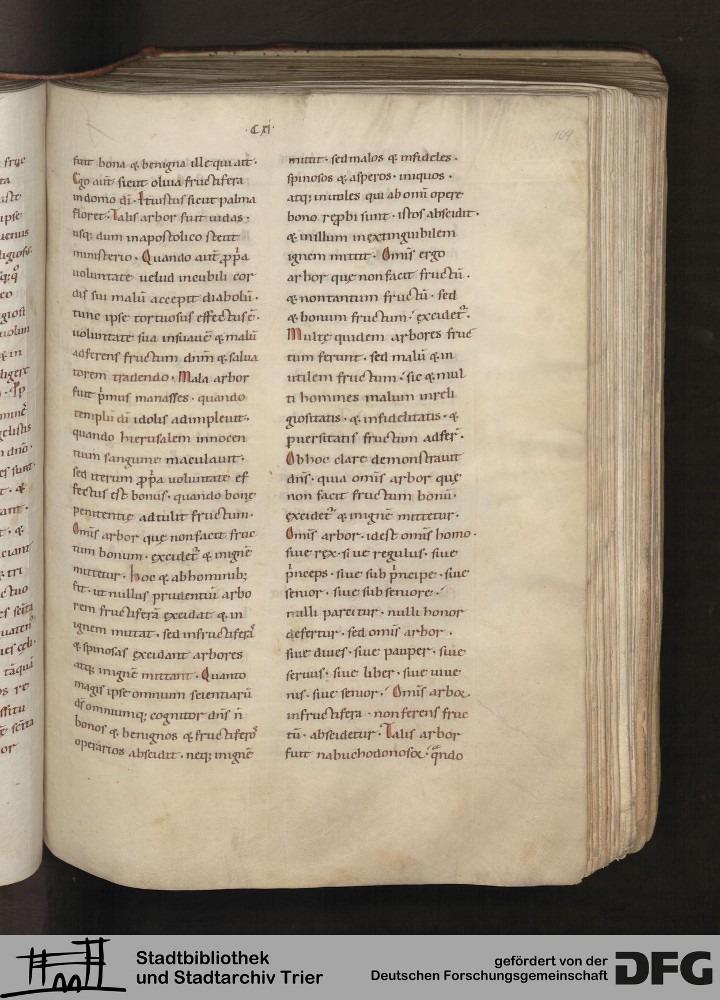 ·CXI·
109
fuit bona & benigna ille qui ait·
Ego aut̄ sicut oliua fructifera
in domo dī· Et iustus sicut palma
floret· Talis arbor fuit iudas·
usq; dum in apostolico stetit
ministerio· Quando aut̄ ꝓp̄a
uoluntate uelud in cubili cor
dis sui malū accepit diabolū·
tunc ipse tortuosus effectus ē·
uoluntate sua insuauē & malū
adferens fructum dnm̄ & salua
torem tradendo· Mala arbor
fuit p̄mus manasses· quando
templū dī idolis adimpleuit·
quando hierusalem innocen
tium sanguine maculauit·
sed iterum ꝓp̄a uoluntate ef
fectus est bonus· quando bonę
penitentię adtulit fructum·
Omīs arbor que non facit fruc
tum bonum· excidet̄ & in ignē
mittetur· hoc & ab hominib;
fit· ut nullus prudentiū arbo
rem fructiferā excidat & in
ignem mittat· sed infructiferā
& spinosas excidant arbores
atq; in ignē mittant· Quanto
magis ipse omnium scientiarū
dś omniumq; cognitor dns̄ n̄
bonos & benignos & fructiferoˢ
operarios abscidit· neq; in ignē
mittit· sed malos & infideles·
spinosos & asperos· iniquos·
atq; inutiles qui ab omī opere
bono rep̄bi sunt· istos abscidit·
& in illum inextinguibilem
ignem mittit· Omīs ergo
arbor quę non facit fructū·
& non tantum fructū· sed
& bonum fructum· excidet̄·
Multę quidem arbores fruc
tum ferunt· sed malū & in
utilem fructum· sic & mul
ti homines malum inreli
giositatis· & infidelitatis· &
puersitatis fructum adfer̄·
Ob hoc clare demonstrauit
dn̄s· quia omīs arbor quę
non facit fructum bonū·
excidet̄ & in ignē mittetur·
Omīs arbor· id est omīs homo·
siue rex· siue regulus· siue
p̄nceps· siue sub p̄ncipe· siue
senior· siue sub seniore·
nulli parcitur· nulli honor
defertur· sed omīs arbor·
siue diues· siue pauper· siue
seruus· siue liber· siue iuue
nis· siue senior· Omīs arbor
infructifera· non ferens fruc
tū· abscidetur· Talis arbor
fuit nabuchodonosor· qn̄do
Stadtbibliothek
und Stadtarchiv Trier
gefördert von der
Deutschen Forschungsgemeinschaft
DFG